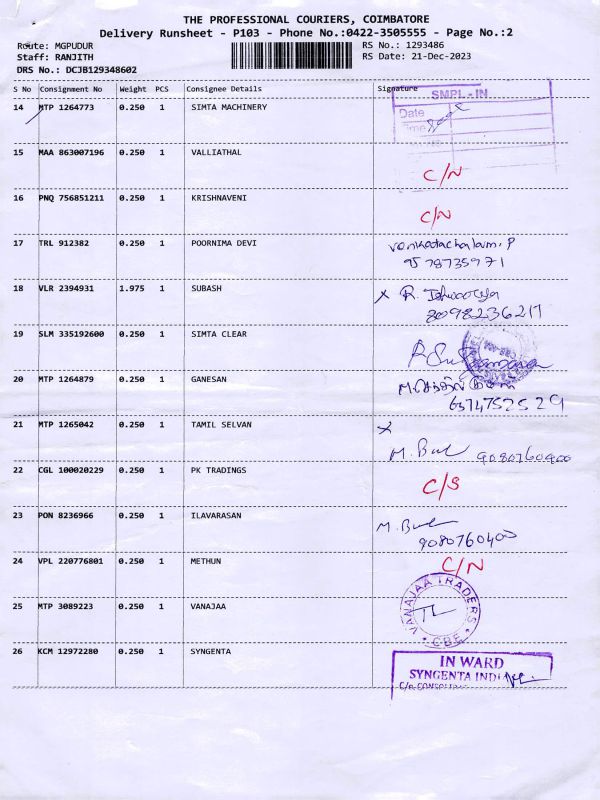 THE PROFESSIONAL COURIERS, COIMBATORE
Delivery Runsheet - P103 - Phone No.:0422-3505555 - Page No.:2
Route: MGPUDUR
Staff: RANJITH
DRS No.: DCJB129348602
RS No.: 1293486
RS Date: 21-Dec-2023
S No Consignment No Weight PCS Consignee Details Signature
SMPL-IN
14 MTP 1264773 0.250 1 SIMTA MACHINERY
Date
Time
15 MAA 863007196 0.250 1 VALLIATHAL
C/N
16 PNQ 756851211 0.250 1 KRISHNAVENI
C/N
17 TRL 912382 0.250 1 POORNIMA DEVI
venkatachalam. P
9578735971
18 VLR 2394931 1.975 1 SUBASH
x R.
8098236217
19 SLM 335192600 0.250 1 SIMTA CLEAR
20 MTP 1264879 0.250 1 GANESAN
6374752529
21 MTP 1265042 0.250 1 TAMIL SELVAN
x
M. 9080760400
22 CGL 100020229 0.250 1 PK TRADINGS
C/S
23 PON 8236966 0.250 1 ILAVARASAN
M.
9080760400
24 VPL 220776801 0.250 1 METHUN
C/N
25 MTP 3089223 0.250 1 VANAJAA
VANAJAA TRADERS
CBE
26 KCM 12972280 0.250 1 SYNGENTA
IN WARD
SYNGENTA INDIA
C/o.